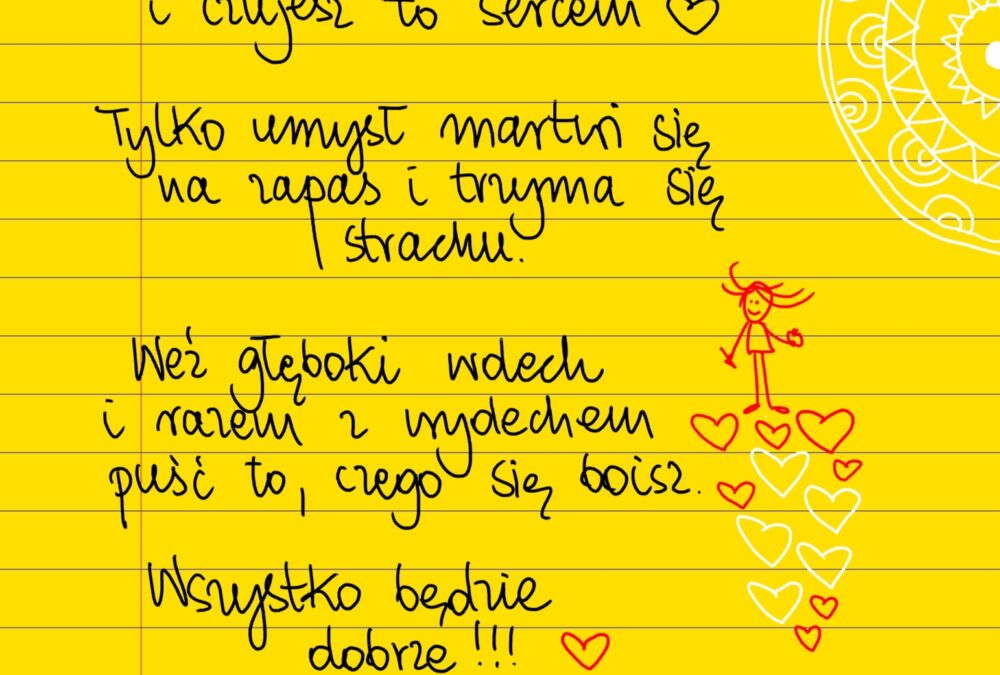 i czujesz to sercem
Tylko umysł martwi się
na zapas i trzyma się
strachu.
Weź głęboki wdech
i razem z wydechem
puść to, czego się boisz.
Wszystko będzie
dobrze!!!